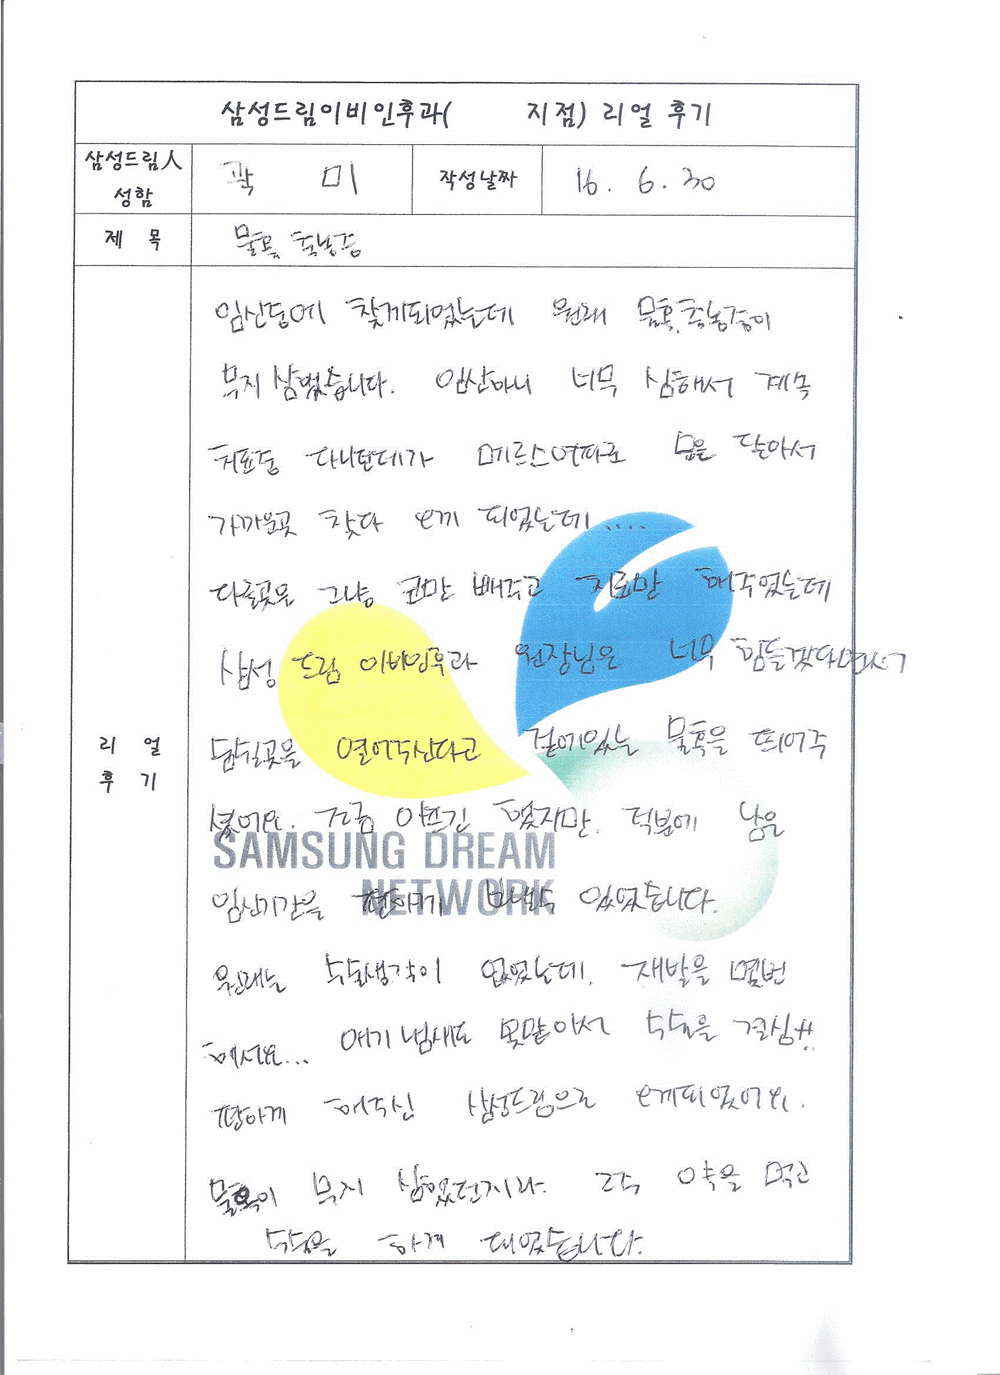 삼성드림이비인후과(      지점) 리얼 후기
삼성드림人
성함
곽 미
작성날짜
16. 6. 30
제 목
물혹 축농증
임신중에 찾게되었는데 원래 물혹, 축농증이
무지 심했습니다. 임신하니 너무 심해서 계속
치료중 다니던데가 메르스여파로 문을 닫아서
가까운곳 찾다 오게 되었는데....
다른곳은 그냥 코만 빼주고 치료만 해주었는데
삼성 드림 이비인후과 원장님은 너무 힘들겠다면서
숨쉴곳을 열어주신다고 겉에있는 물혹을 띄어주
셨어요. 조금 아프긴 했지만, 덕분에 남은
임신기간을 편하게 보낼수 있었습니다.
원래는 수술생각이 없었는데, 재발을 몇번
해서요... 애기 냄새도 못맡아서 수술을 결심!!
편하게 해주신 삼성드림으로 오게되었어요.
물혹이 무지 심했던지라 2주 약을 먹고
수술을 하게 되었습니다.
리 얼
후 기
SAMSUNG DREAM
NETWORK